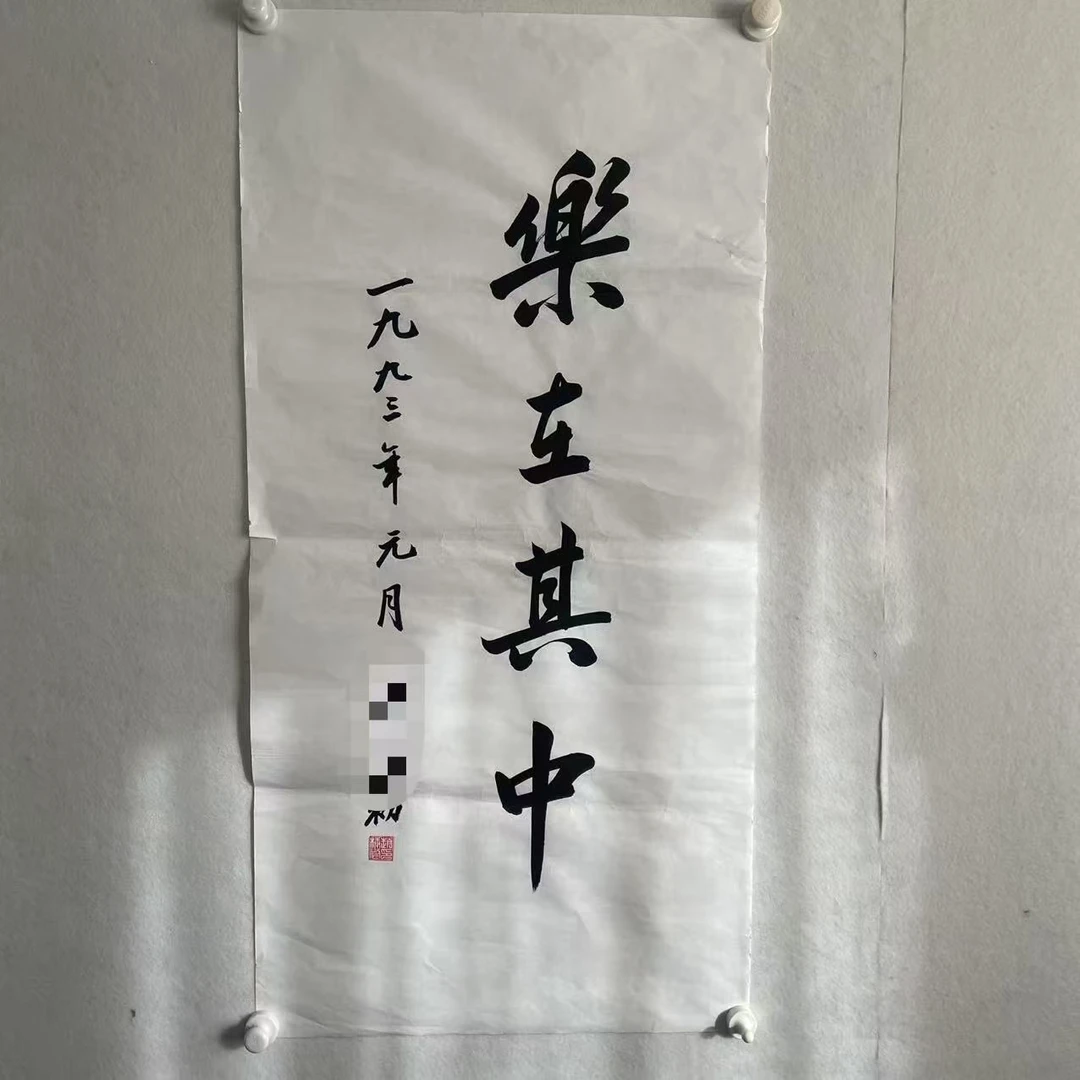 樂在其中
一九九三年元月